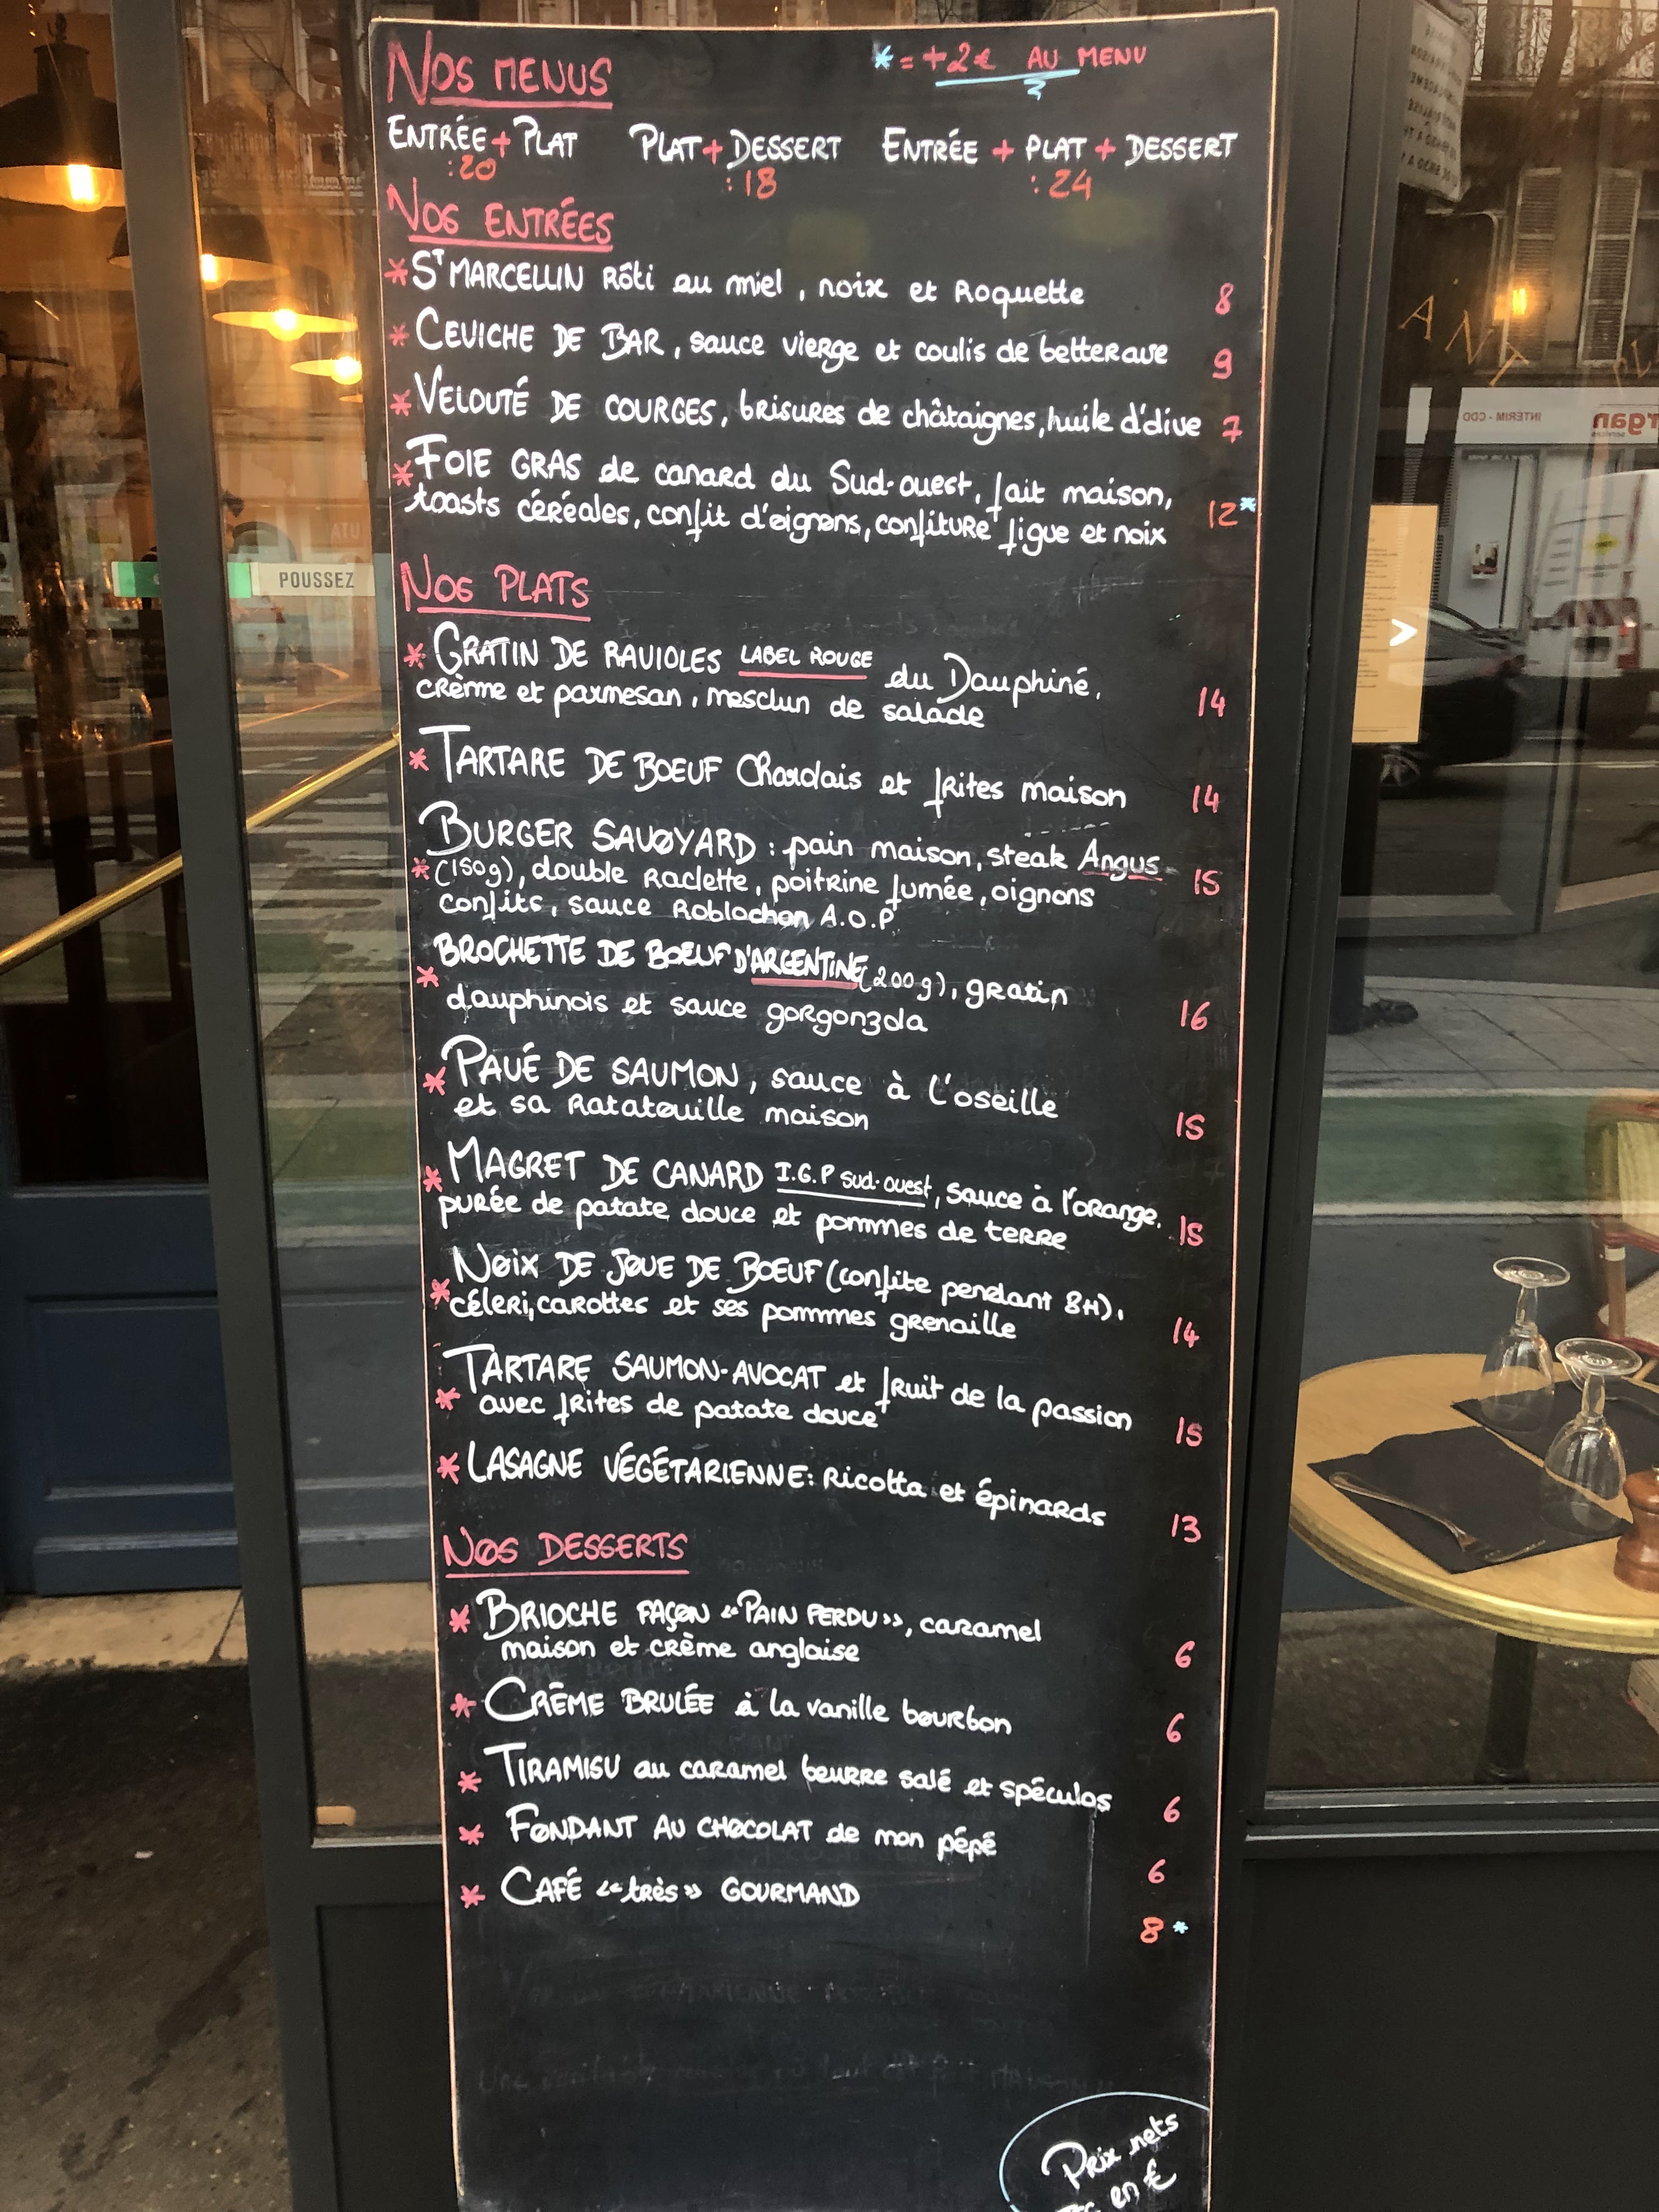 NOS MENUS
* = +2€ AU MENU
ENTRÉE + PLAT PLAT + DESSERT ENTRÉE + PLAT + DESSERT
:20 :18 :24
NOS ENTRÉES
* ST MARCELLIN Rôti au miel, noix et Roquette 8
* CEVICHE DE BAR, sauce vierge et coulis de betterave 9
* VELOUTÉ DE COURGES, brisures de châtaignes, huile d'olive 7
* FOIE GRAS de canard du Sud-ouest, fait maison,
toasts céréales, confit d'oignons, confiture figue et noix 12*
NOS PLATS
* GRATIN DE RAVIOLES LABEL ROUGE du Dauphiné,
crème et parmesan, mesclun de salade 14
* TARTARE DE BOEUF Charolais et frites maison 14
BURGER SAVOYARD : pain maison, steak Angus
* (150g), double Raclette, poitrine fumée, oignons 15
confits, sauce Roblochon A.O.P
BROCHETTE DE BOEUF D'ARGENTINE (200g), gratin
* dauphinois et sauce gorgonzola 16
* PAVÉ DE SAUMON, sauce à l'oseille
et sa Ratatouille maison 15
* MAGRET DE CANARD I.G.P Sud-ouest, sauce à l'orange,
purée de patate douce et pommes de terre 15
NOIX DE JOUE DE BOEUF (confite pendant 8H),
* céleri, carottes et ses pommmes grenaille 14
TARTARE SAUMON-AVOCAT et fruit de la passion
* avec frites de patate douce 15
* LASAGNE VÉGÉTARIENNE: Ricotta et épinards 13
NOS DESSERTS
* BRIOCHE FAÇON «PAIN PERDU», caramel
maison et crème anglaise 6
* CRÈME BRULÉE à la vanille bourbon 6
* TIRAMISU au caramel beurre salé et spéculos 6
* FONDANT AU CHOCOLAT de mon pépé 6
* CAFÉ «très» GOURMAND 8*
Prix nets
en €
POUSSEZ
INTERIM - CDD